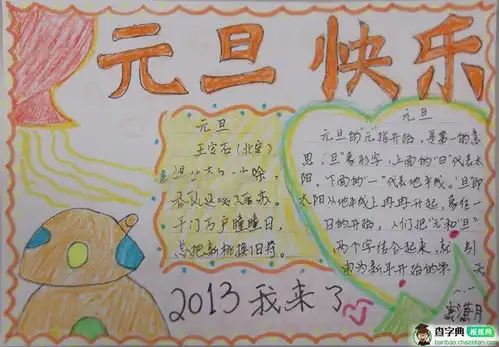 元旦 快乐
元旦
王安石(北宋)
千门万户瞳瞳日,
总把新桃换旧符。
元旦
元旦的"元"指开始,是第一的意
思,"旦"象形字,上面的"日"代表太
阳,下面的"一"代表地平线。"旦"即
太阳从地平线上冉冉升起,象征一
日的开始,人们把"元和"旦"
两个字结合起来,就
2013我来了
查字典 板报网
banbao.chazidian.com